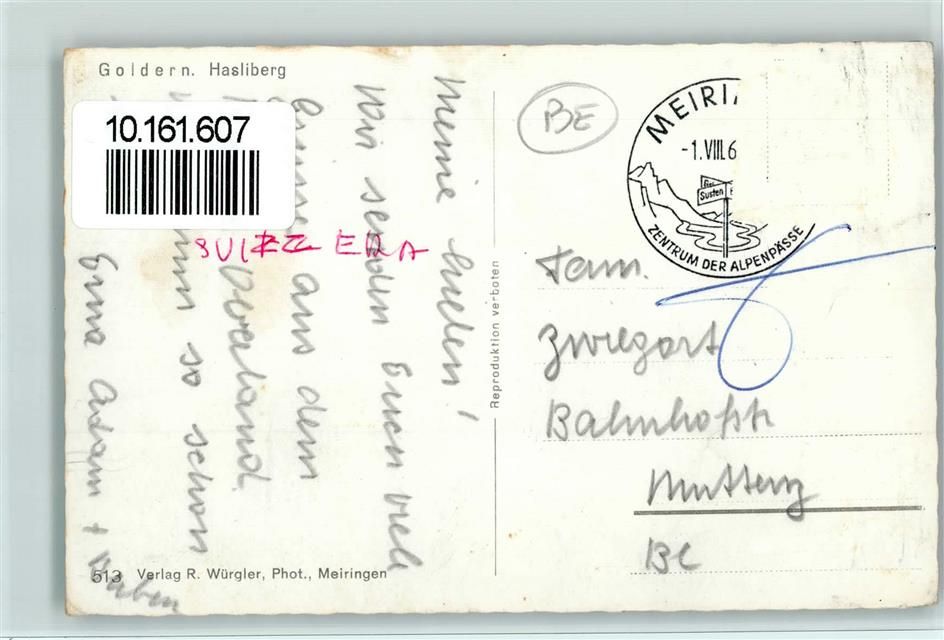 Goldern. Hasliberg
10.161.607
SUIZZERA
Meine Lieben!
Wir senden Euch viele
aus dem
Oberland.
so schön
Erna Adam +
513 Verlag R. Würgler, Phot., Meiringen
Reproduktion verboten
BE
MEIRI
-1.VIII.6
Susten
ZENTRUM DER ALPENPÄSSE
Fam.
Zwiegart
Bahnhofstr
Muttenz
BL